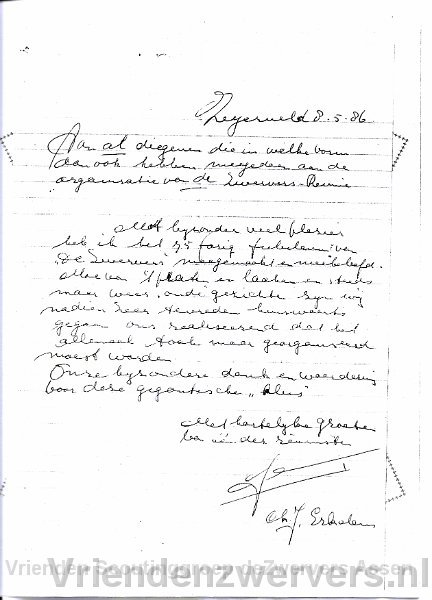 Zeyerveld 8-5-86
Aan al diegenen die in welke vorm
dan ook hebben meegedaan aan de
organisatie van de Zwervers-Reunie
Met byzonder veel plezier
heb ik het 75 jarig jubileum van
"De Zwervers" meegemaakt en meebeleefd.
Alleen praten en lachen en steeds
maar weer, oude gezichten zyn wy
nadien zeer tevreden huiswaarts
gegaan ons realiserend dat het
allemaal toch maar georganiseerd
moest worden
Onze byzondere dank en waardering
voor deze gigantische "klus"
Met hartelyke groeten
één der reünisten
Ch. J.
Vrienden Scoutinggroep deZwervers Assen
Vriendenzwervers.nl